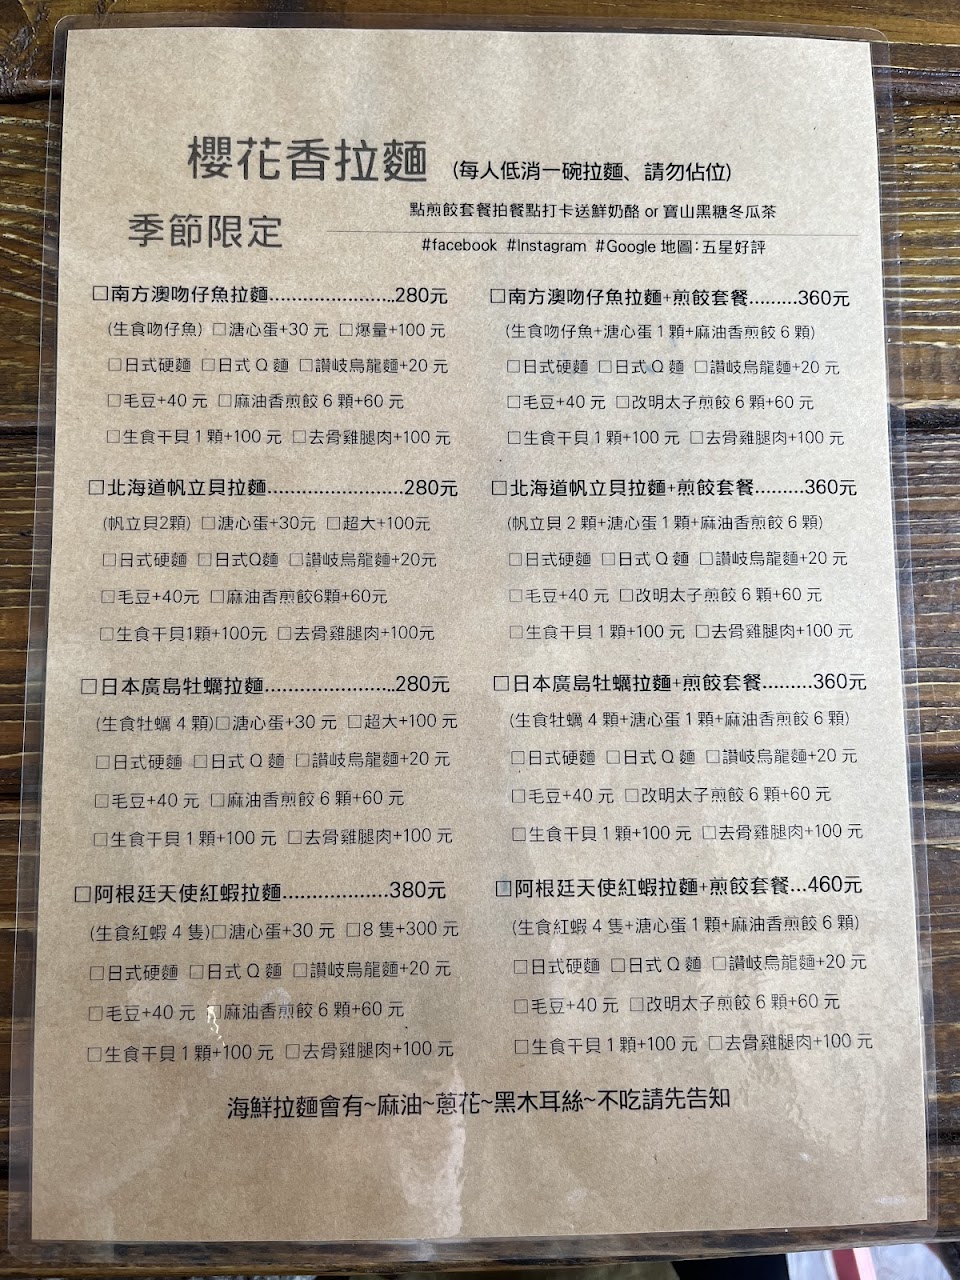 櫻花香拉麵 (每人低消一碗拉麵、請勿佔位)
季節限定
點煎餃套餐拍餐點打卡送鮮奶酪 or 寶山黑糖冬瓜茶
#facebook #Instagram #Google 地圖:五星好評
□南方澳吻仔魚拉麵........................280元
(生食吻仔魚) □溏心蛋+30 元 □爆量+100 元
□日式硬麵 □日式 Q 麵 □讚岐烏龍麵+20 元
□毛豆+40 元 □麻油香煎餃 6 顆+60 元
□生食干貝 1 顆+100 元 □去骨雞腿肉+100 元
□北海道帆立貝拉麵..........................280元
(帆立貝2顆) □溏心蛋+30元 □超大+100元
□日式硬麵 □日式Q麵 □讚岐烏龍麵+20元
□毛豆+40元 □麻油香煎餃6顆+60元
□生食干貝1顆+100元 □去骨雞腿肉+100元
□日本廣島牡蠣拉麵.........................280元
(生食牡蠣 4 顆)□溏心蛋+30 元 □超大+100 元
□日式硬麵 □日式 Q 麵 □讚岐烏龍麵+20 元
□毛豆+40 元 □麻油香煎餃 6 顆+60 元
□生食干貝 1 顆+100 元 □去骨雞腿肉+100 元
□阿根廷天使紅蝦拉麵....................380元
(生食紅蝦 4 隻)□溏心蛋+30 元 □8 隻+300 元
□日式硬麵 □日式 Q 麵 □讚岐烏龍麵+20 元
□毛豆+40 元 □麻油香煎餃 6 顆+60 元
□生食干貝 1 顆+100 元 □去骨雞腿肉+100 元
□南方澳吻仔魚拉麵+煎餃套餐.........360元
(生食吻仔魚+溏心蛋 1 顆+麻油香煎餃 6 顆)
□日式硬麵 □日式 Q 麵 □讚岐烏龍麵+20 元
□毛豆+40 元 □改明太子煎餃 6 顆+60 元
□生食干貝 1 顆+100 元 □去骨雞腿肉+100 元
□北海道帆立貝拉麵+煎餃套餐.........360元
(帆立貝 2 顆+溏心蛋 1 顆+麻油香煎餃 6 顆)
□日式硬麵 □日式 Q 麵 □讚岐烏龍麵+20 元
□毛豆+40 元 □改明太子煎餃 6 顆+60 元
□生食干貝 1 顆+100 元 □去骨雞腿肉+100 元
□日本廣島牡蠣拉麵+煎餃套餐.........360元
(生食牡蠣 4 顆+溏心蛋 1 顆+麻油香煎餃 6 顆)
□日式硬麵 □日式 Q 麵 □讚岐烏龍麵+20 元
□毛豆+40 元 □改明太子煎餃 6 顆+60 元
□生食干貝 1 顆+100 元 □去骨雞腿肉+100 元
□阿根廷天使紅蝦拉麵+煎餃套餐...460元
(生食紅蝦 4 隻+溏心蛋 1 顆+麻油香煎餃 6 顆)
□日式硬麵 □日式 Q 麵 □讚岐烏龍麵+20 元
□毛豆+40 元 □改明太子煎餃 6 顆+60 元
□生食干貝 1 顆+100 元 □去骨雞腿肉+100 元
海鮮拉麵會有~麻油~蔥花~黑木耳絲~不吃請先告知